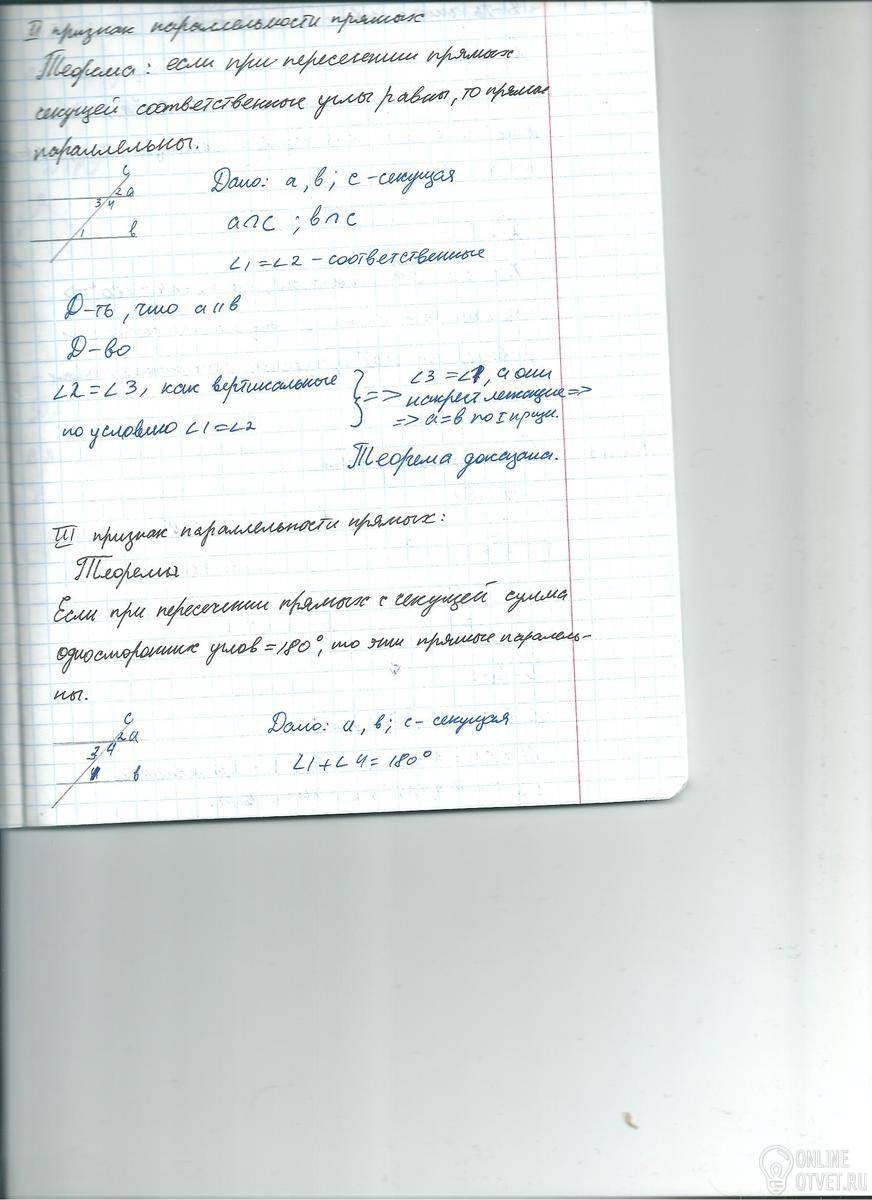 II признак параллельности прямых
Теорема: если при пересечении прямых
секущей соответственные углы равны, то прямые
параллельны.
c
2 a
3 4
1 в
Дано: a, в; c - секущая
a∩c ; в∩c
∠1 = ∠2 - соответственные
Д-ть, что a॥в
Д-во
∠2 = ∠3, как вертикальные
по условию ∠1 = ∠2
} => ∠3 = ∠1, а они
накрест лежащие =>
=> a = в по I призн.
Теорема доказана.
III признак параллельности прямых:
Теорема
Если при пересечении прямых с секущей сумма
односторонних углов = 180°, то эти прямые паралель-
ны.
c
2 a
3 4
1 в
Дано: a, в; c - секущая
∠1 + ∠4 = 180°
ONLINE
OTVET.RU